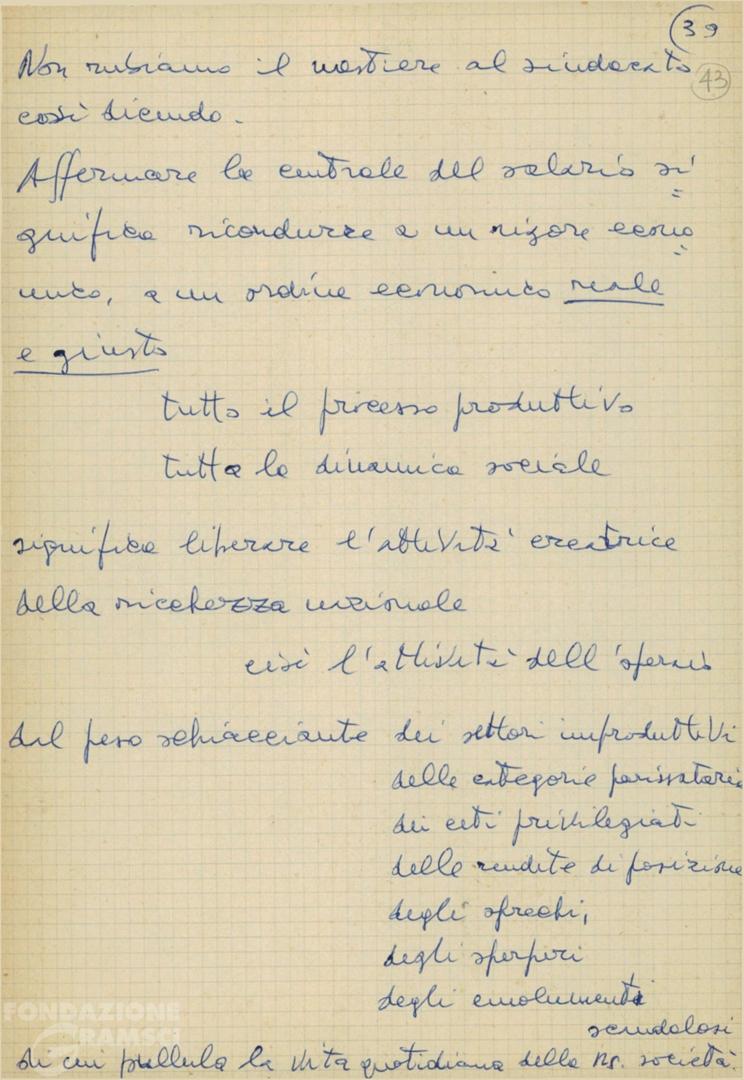 39
43
Non rubiamo il mestiere al sindacato
così dicendo.
Affermare la centrale del salario si=
gnifica ricondurre a un rigore econo=
mico, a un ordine economico reale
e giusto
tutto il processo produttivo
tutta la dinamica sociale
significa liberare l'attività creatrice
della ricchezza nazionale
cioè l'attività dell'operaio
dal peso schiacciante dei settori improduttivi
delle categorie parissatarie
dei ceti privilegiati
delle rendite di posizione
degli sprechi,
degli sperperi
degli emolumenti
scandalosi
di cui pullula la vita quotidiana della ns. società.
FONDAZIONE
GRAMSCI